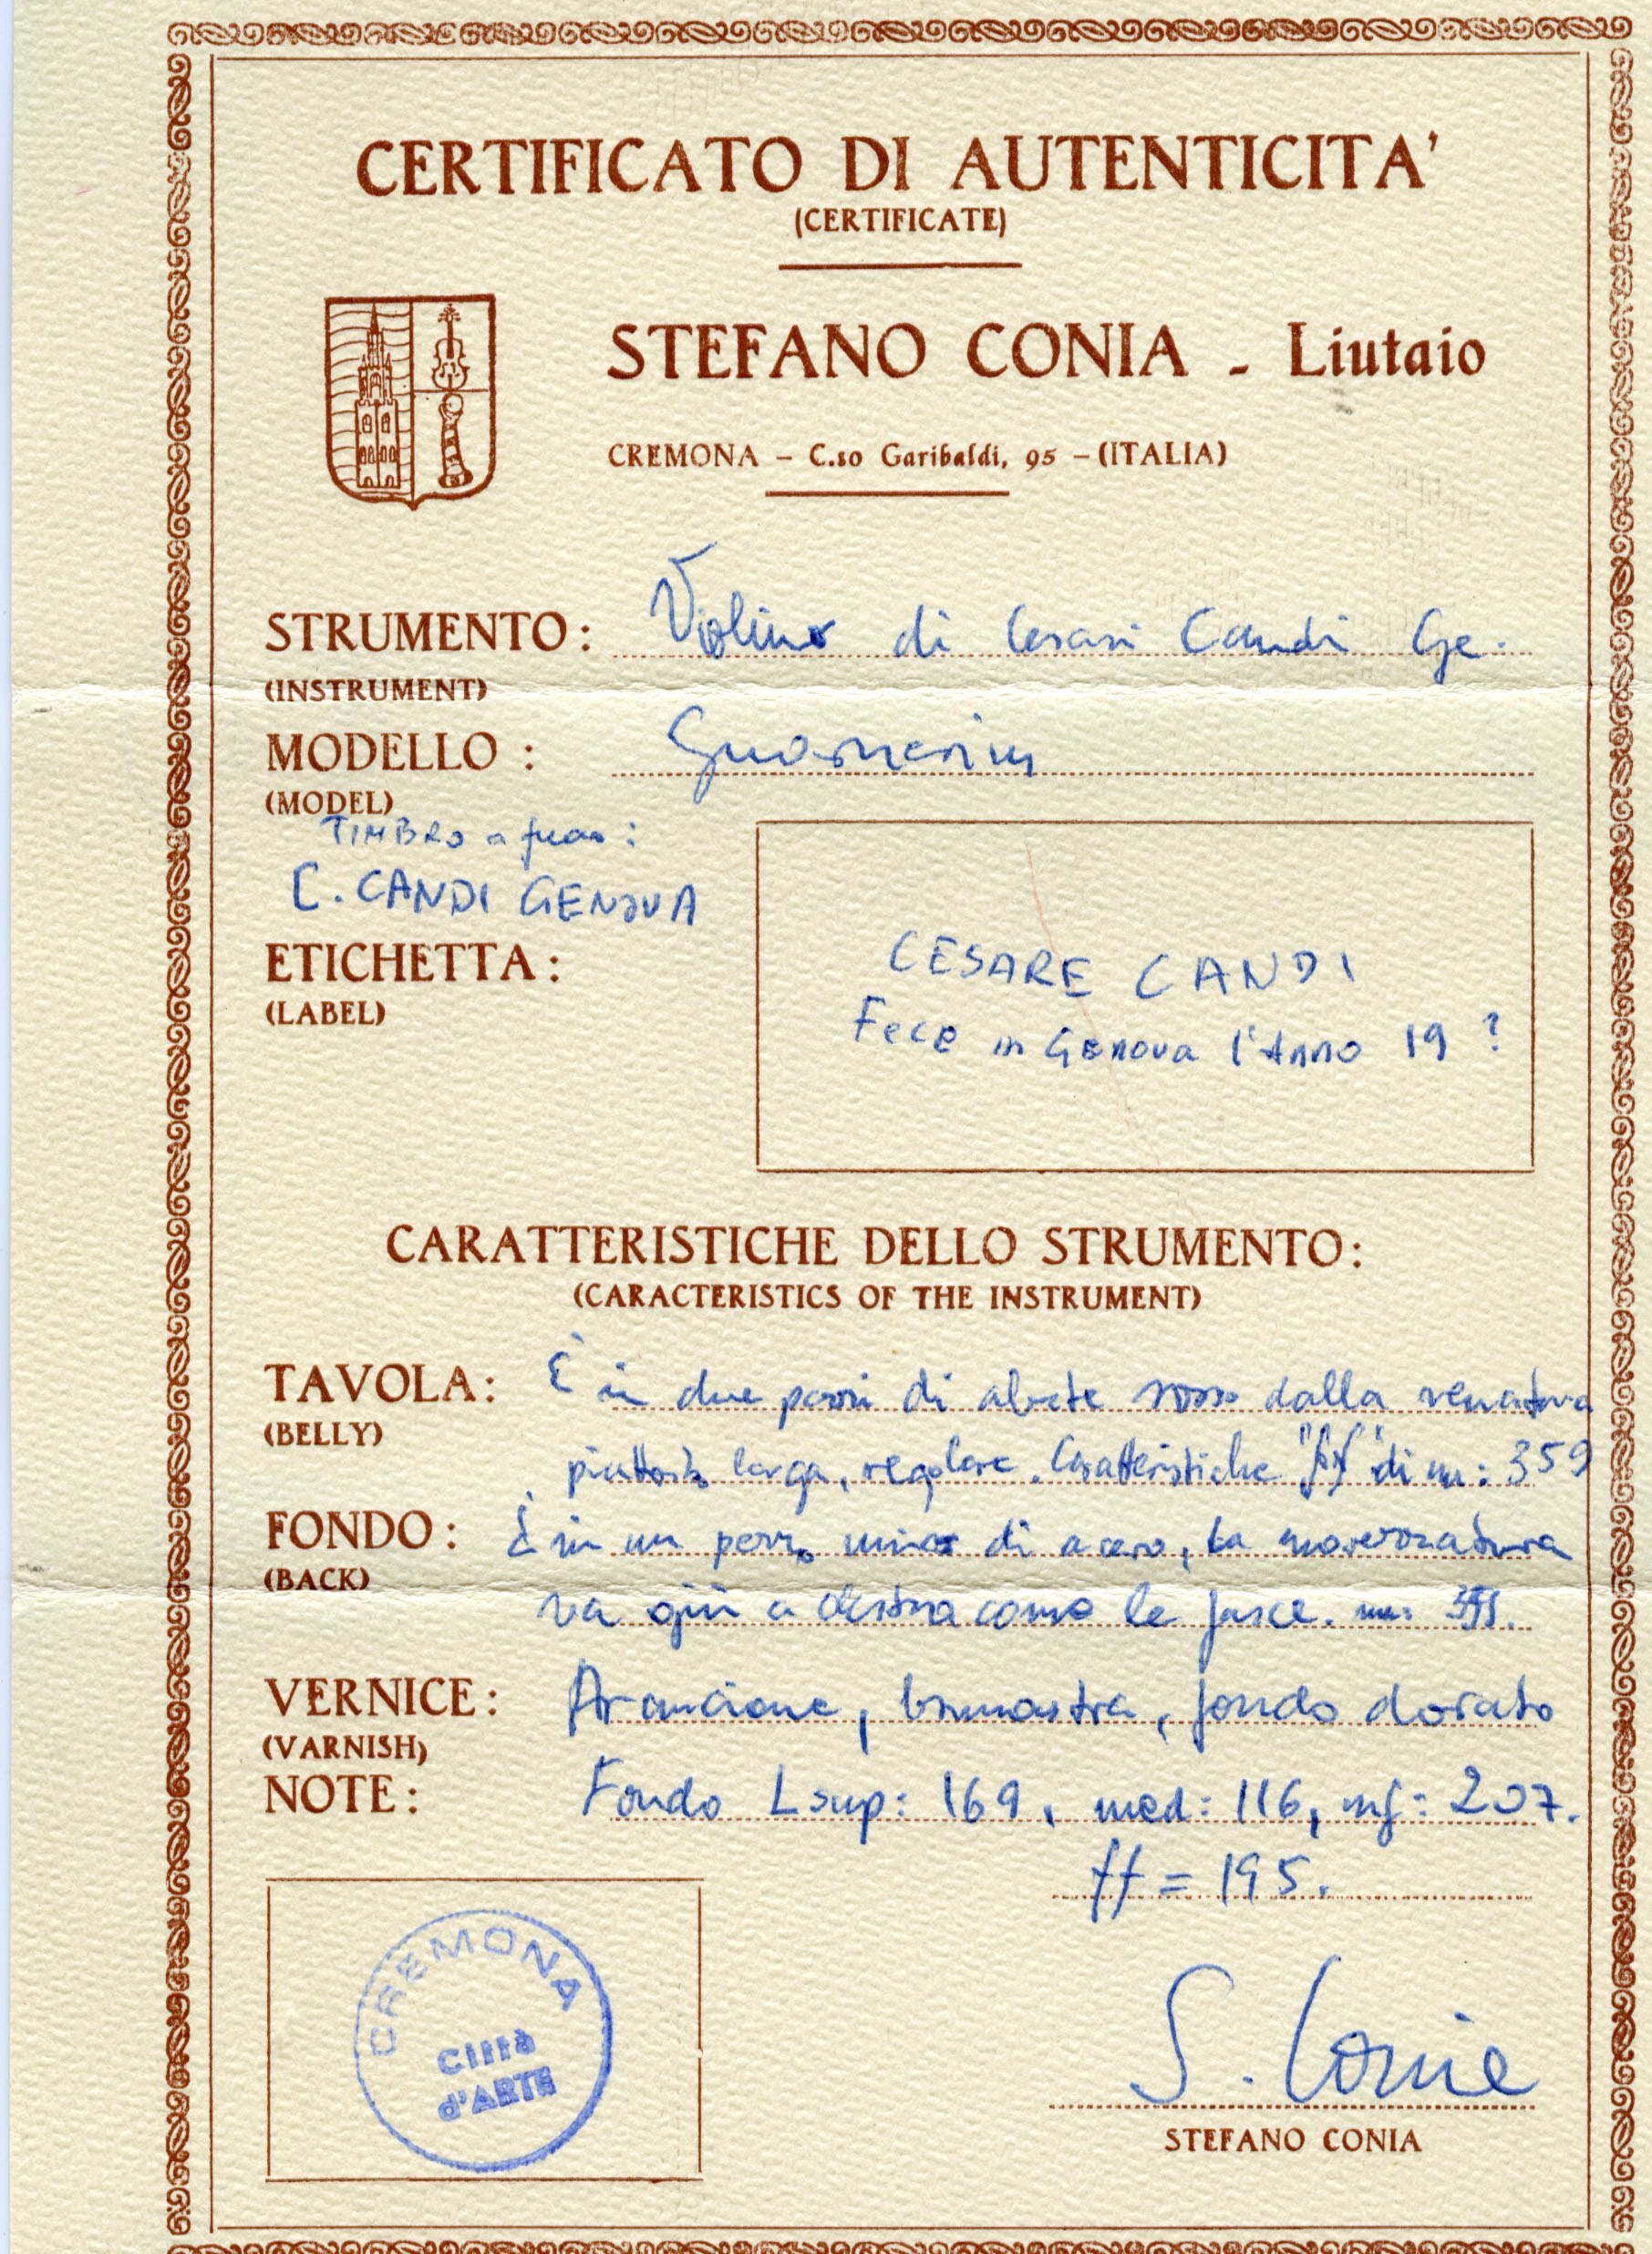 CERTIFICATO DI AUTENTICITA'
(CERTIFICATE)
STEFANO CONIA - Liutaio
CREMONA - C.so Garibaldi, 95 - (ITALIA)
STRUMENTO: Violino di Cesari Candi Ge.
(INSTRUMENT)
MODELLO : Guarnerius
(MODEL)
TIMBRO a fuoco :
C. CANDI GENOVA
ETICHETTA :
(LABEL)
CESARE CANDI
Fece in Genova l'Anno 19 ?
CARATTERISTICHE DELLO STRUMENTO:
(CARACTERISTICS OF THE INSTRUMENT)
TAVOLA: È in due pezzi di abete rosso dalla venatura
(BELLY)
piuttosto larga, regolare. Caratteristiche "ff" di m: 359
FONDO: È in un pezzo unico di acero, la marezzatura
(BACK)
va giù a destra come le fasce. mm:
VERNICE: Arancione, brunastra, fondo dorato
(VARNISH)
NOTE: Fondo L sup: 169, med: 116, inf: 207.
ff = 195.
CREMONA
Città
d'ARTE
S. Conia
STEFANO CONIA